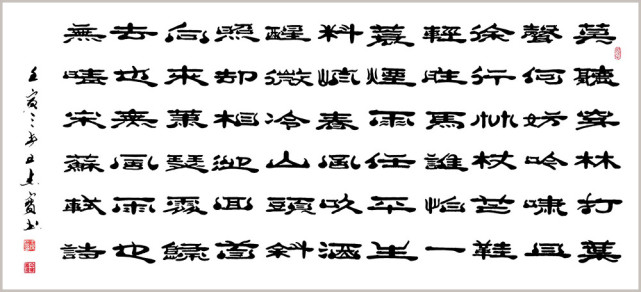 莫聽穿林打葉
聲何妨吟嘯且
徐行竹杖芒鞋
輕胜馬誰怕一
蓑煙雨任平生
料峭春風吹酒
醒微冷山頭斜
照却相迎回首
向來蕭瑟處歸
去也無風雨也
無晴宋蘇軾詩
壬寅